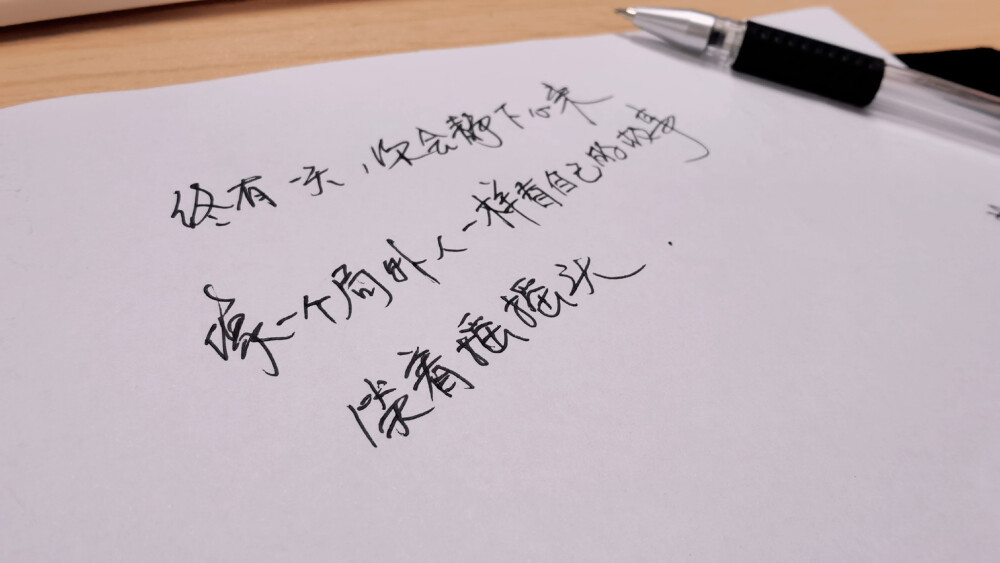 终有一天，你会静下心来
像一个局外人一样看自己的故事
笑着摇摇头.